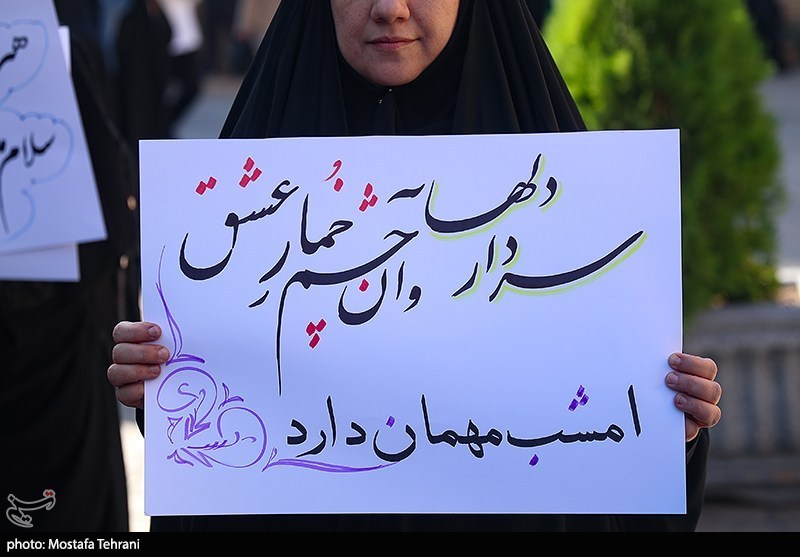 سردار دلها
وآن چشم خمار عشق
امشب مهمان دارد
سلام
photo: Mostafa Tehrani